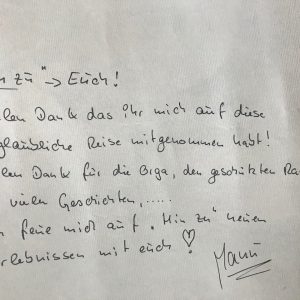 n zu" → Euch!
len Dank das ihr mich auf diese
glaubliche Reise mitgenommen habt!
len Dank für die Giga, den geschützten Ra
vielen Geschichten,.....
freue mich auf "Hin zu" neuen
erlebnissen mit euch! ♡